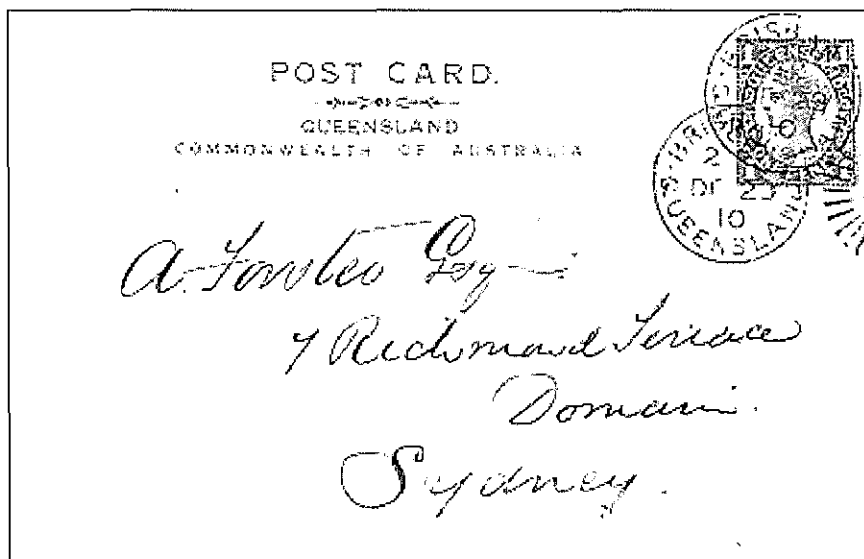 POST CARD.
QUEENSLAND
COMMONWEALTH OF AUSTRALIA
S. BRISB
2
DE 23
10
QUEENSLAND
A. Fowles Esq
7 Richmond Terrace
Domain.
Sydney.